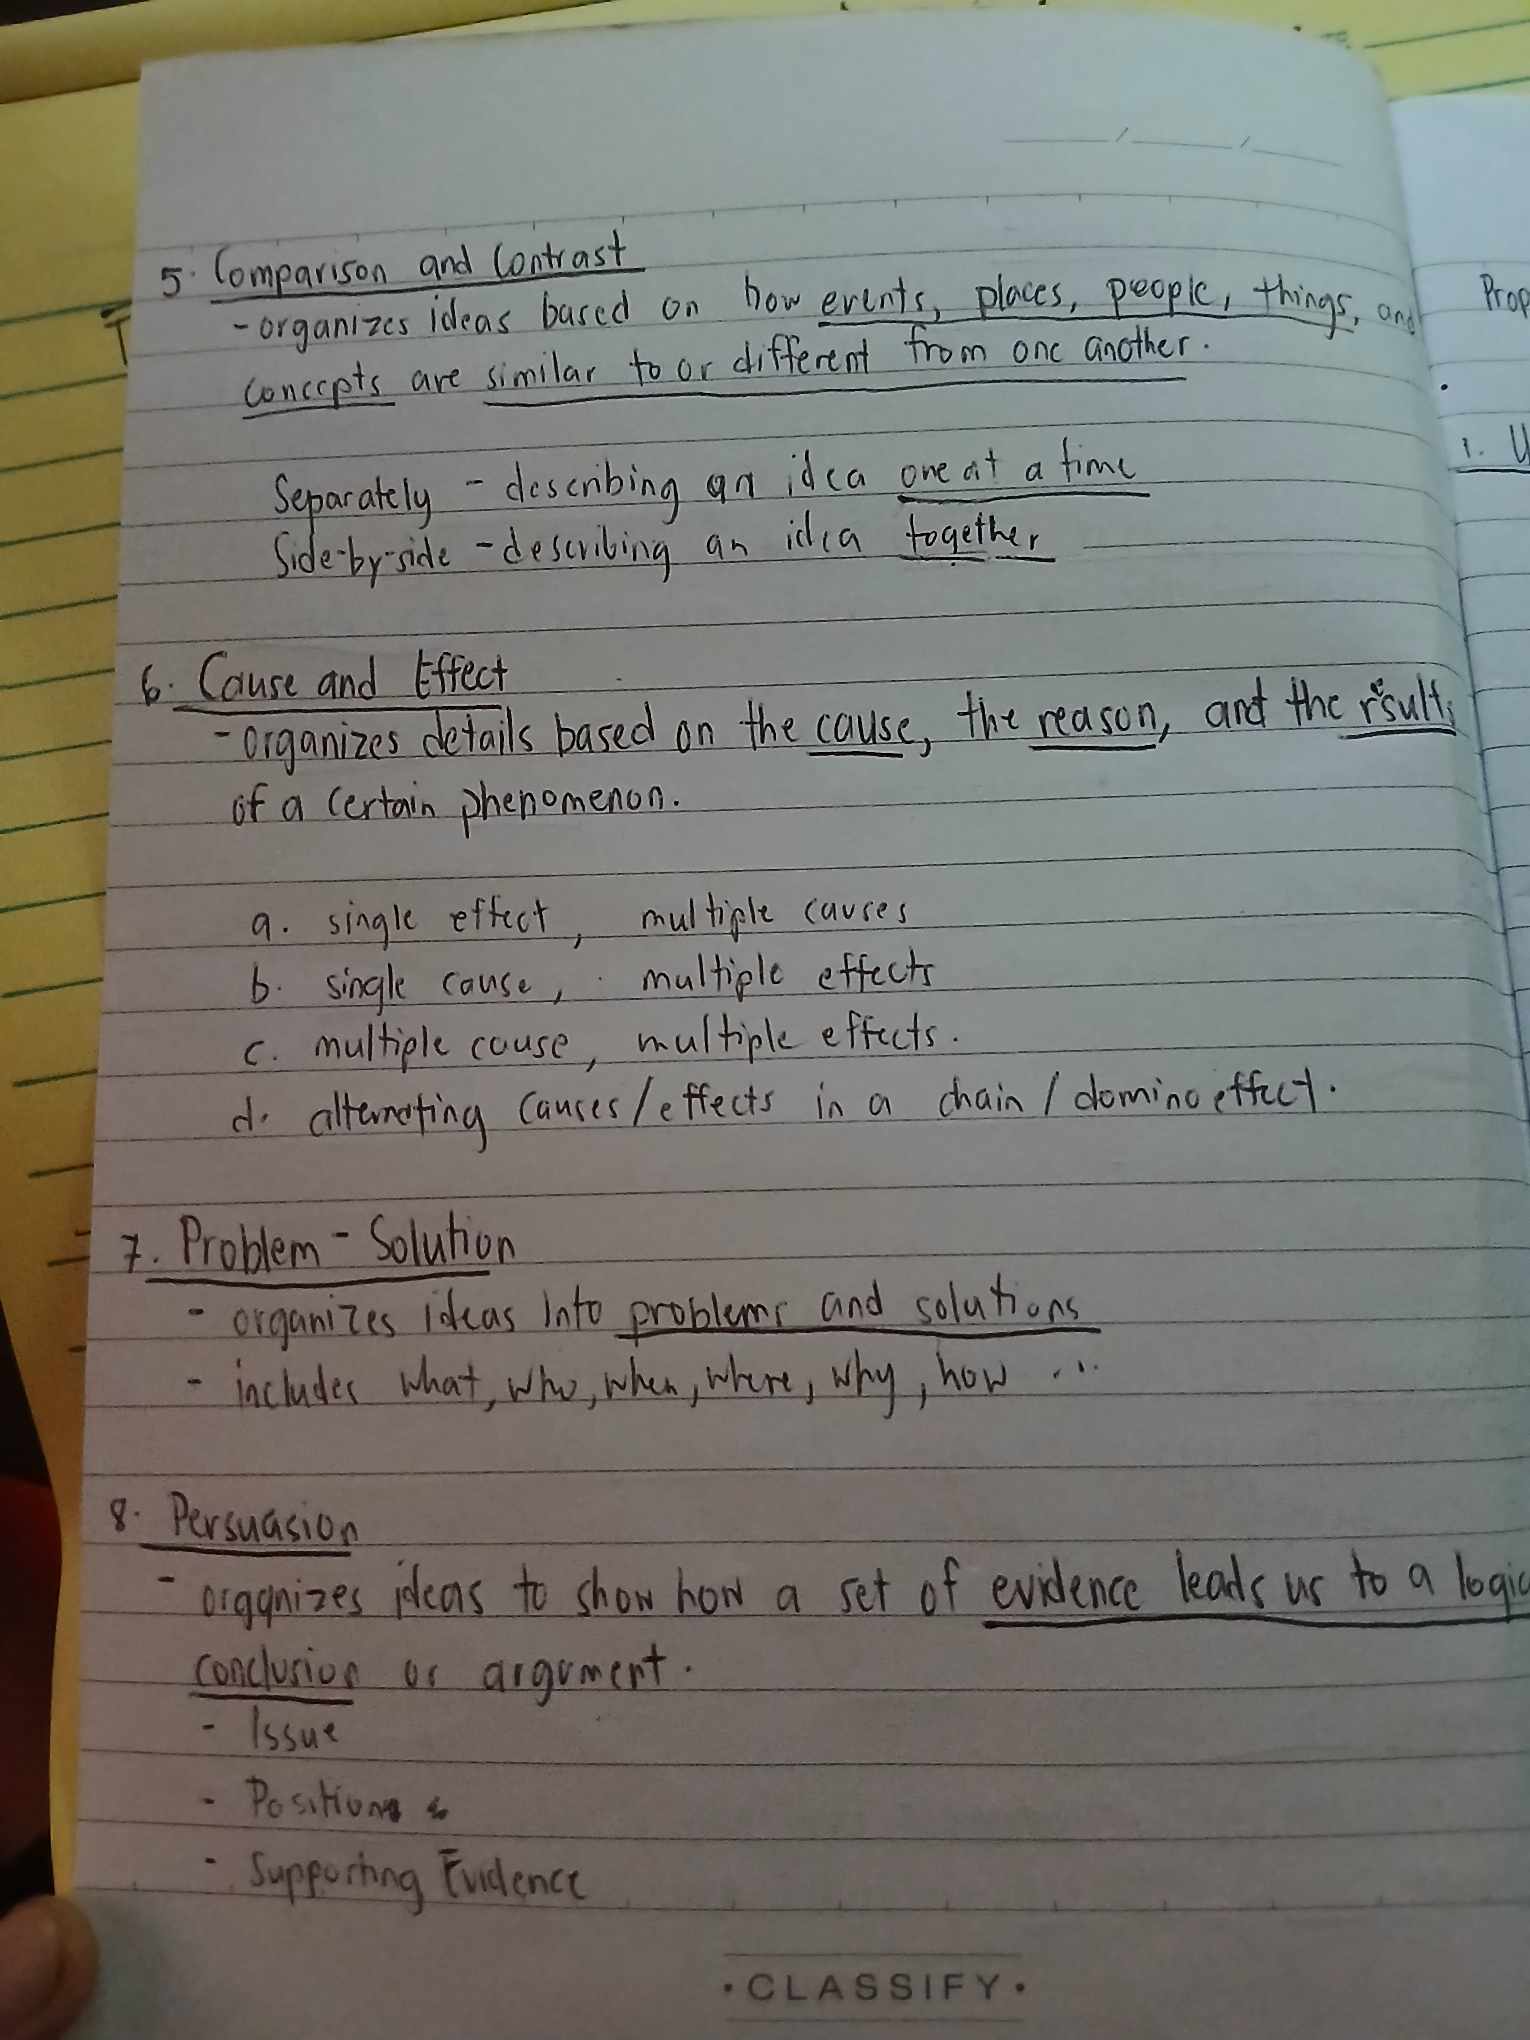 5. Comparison and Contrast
- organizes ideas based on how events, places, people, things, and
concepts are similar to or different from one another.
Separately - describing an idea one at a time
Side-by-side - describing an idea together
6. Cause and Effect
- organizes details based on the cause, the reason, and the results
of a certain phenomenon.
a. single effect, multiple causes
b. single cause, multiple effects
c. multiple cause, multiple effects.
d. alternating causes/effects in a chain / domino effect.
7. Problem - Solution
- organizes ideas into problems and solutions
- includes what, who, when, where, why, how ...
8. Persuasion
- organizes ideas to show how a set of evidence leads us to a logic
conclusion or argument.
- Issue
- Position
- Supporting Evidence
• CLASSIFY •
Prop
1. U